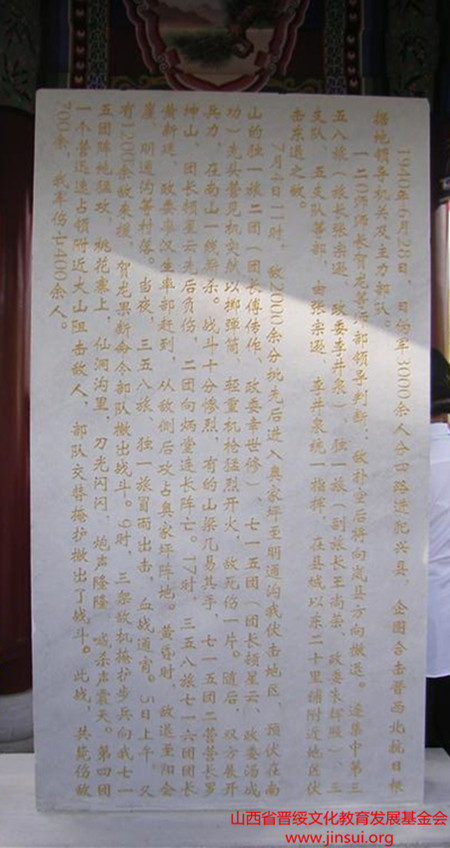 1940年6月28日，日伪军3000余人分四路进犯兴县，企图合击晋西北抗日根
据地领导机关及主力部队。
一二〇师师长贺龙等师部领导判断：敌扑空后将向岚县方向撤退。遂集中第三
五八旅（旅长张宗逊、政委李井泉）、独一旅（副旅长王尚荣、政委朱辉照）、三
支队、五支队等部，由张宗逊、李井泉统一指挥，在县城以东二十里铺附近地区伏
击东返之敌。
7月4日11时，敌2000余分批先后进入奥家坪至明通沟我伏击地区，预伏在南
山的独一旅二团（团长傅传作、政委幸世修）、七一五团（团长顿星云、政委汤成
功）先头营见机突然以掷弹筒、轻重机枪猛烈开火，敌死伤一片。随后，双方展开
兵力，在南山一线厮杀。战斗十分惨烈，有的山梁几易其手，七一五团二营营长罗
坤山、团长顿星云先后负伤，二团向炳堂连长阵亡。17时，三五八旅七一六团团长
黄新廷、政委奥汉生率部赶到，从敌侧后攻占奥家坪阵地。黄昏时，敌退至阳会
崖、明通沟等村落。当夜，三五八旅、独一旅冒雨出击，血战通宵。5日上午，又
有1200余敌来援，贺龙果断命令部队撤出战斗。9时，三架敌机掩护步兵向我七一
五团阵地猛攻，桃花寨上，仙洞沟里，刀光闪闪，炮声隆隆，喊杀声震天。第四团
一个营迅速占领附近大山阻击敌人，部队交替掩护撤出了战斗。此战，共毙伤敌
700余，我军伤亡400余人。
山西省晋绥文化教育发展基金会
www.jinsui.org